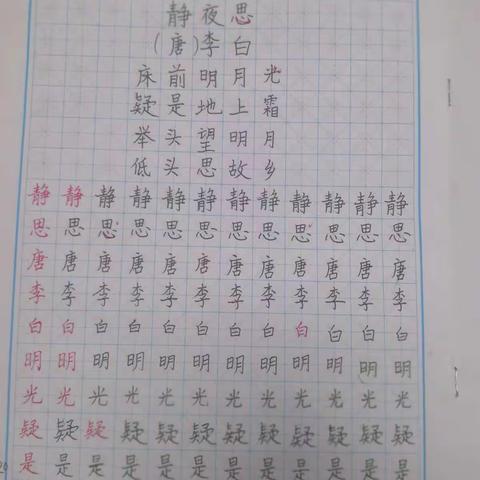 静夜思
(唐)李白
床前明月光
疑是地上霜
举头望明月
低头思故乡
静静静静静静静静静静静
思思思思思思思思思思思
唐唐唐唐唐唐唐唐唐唐唐
李李李李李李李李李李李
白白白白白白白白白白白
明明明明明明明明明明明
光光光光光光光光光光光
疑疑疑疑疑疑疑疑疑疑疑
是是是是是是是是是是是